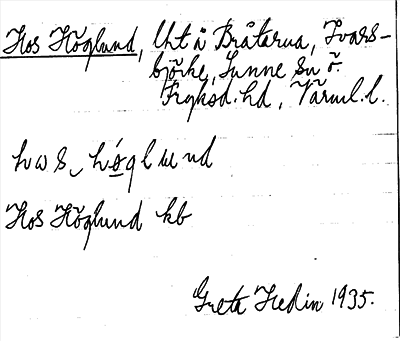 Hos Höglund, lht å Bråtarna, Ivars-
björke, Sunne sn ö.
Fryksd. hd, Värml. l.
hɷs høglund
Hos Höglund kb
Greta Hedin 1935.